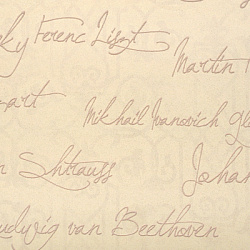 ky Ferenc Liszt
Martin
art
Mikhail Ivanovich Gl
n Shtrauss
Joha
udwig van Beethoven